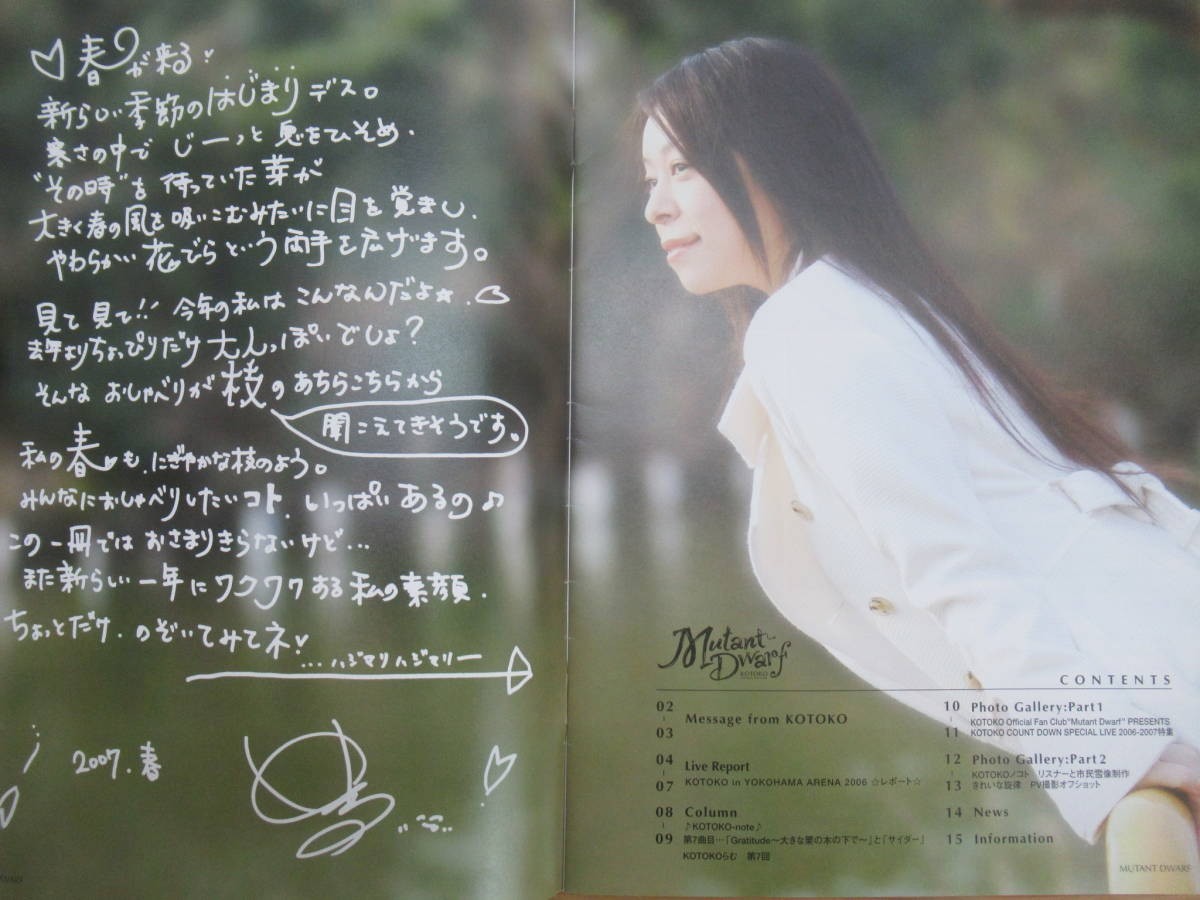 ♡春が来る!
新らしい季節のはじまりデス。
寒さの中で じーっと 息をひそめ.
"その時"を 待っていた 芽が
大きく春の風を吸いこむみたいに目を覚まし.
やわらかい 花びらという両手を広げます。
見て 見て!! 今年の私は こんなんだよ☆.
去年よりちょっぴりだけ 大人っぽいでしょ?
そんな おしゃべりが 枝のあちらこちらから
聞こえてきそうです。
私の春も、にぎやかな枝のよう。
みんなにおしゃべりしたいコト、いっぱいあるの♪
この一冊では おさまりきらないけど...
また新らしい一年に ワクワクする 私の素顔.
ちょっとだけ. のぞいてみてネ!
...ハジマリハジマリー
2007. 春
Mutant Dwarf
KOTOKO
CONTENTS
02-03 Message from KOTOKO
04-07 Live Report
KOTOKO in YOKOHAMA ARENA 2006 ☆レポート☆
08-09 Column
♪KOTOKO-note♪
第7曲目…「Gratitude〜大きな樅の木の下で〜」と「サイダー」
KOTOKOらむ 第7回
10-11 Photo Gallery:Part1
KOTOKO Official Fan Club"Mutant Dwarf" PRESENTS
KOTOKO COUNT DOWN SPECIAL LIVE 2006-2007特集
12-13 Photo Gallery:Part2
KOTOKOノコト リスナーと市民雪像制作
きれいな旋律 PV撮影オフショット
14 News
15 Information
MUTANT DWARF